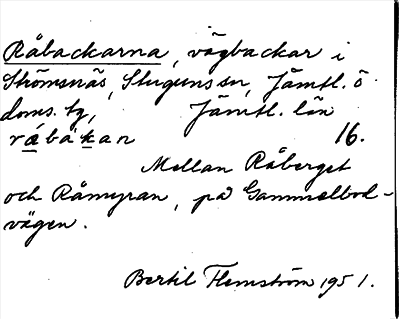 Råbackarna, vägbackar i
Strömsnäs, Stuguns sn, Jämtl. ö.
doms. tg, Jämtl. län
råbákan 16.
Mellan Råberget
och Råmyran, på Gammelbod-
vägen.
Bertil Flemström 1951.